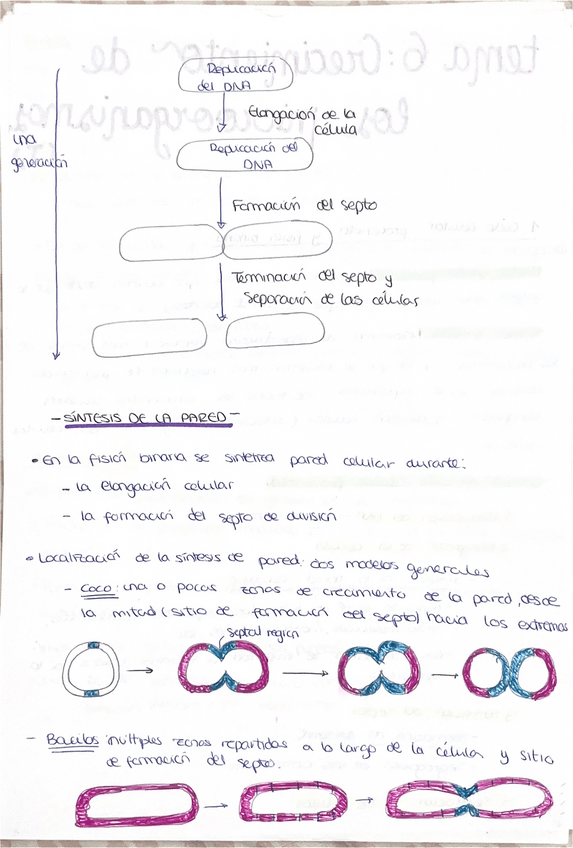 Replicación
del DNA
Elongación de la
célula
una
generación
Replicación del
DNA
Formación del septo
Terminación del septo y
separación de las células
- SÍNTESIS DE LA PARED -
• En la fisión binaria se sintetiza pared celular durante:
- la elongación celular
- la formación del septo de división
• Localización de la síntesis de pared: dos modelos generales
- Coco: una o pocas zonas de crecimiento de la pared, desde
la mitad (sitio de formación del septo) hacia los extremos
septal region
- Bacilos múltiples zonas repartidas a lo largo de la célula y sitio
de formación del septo.